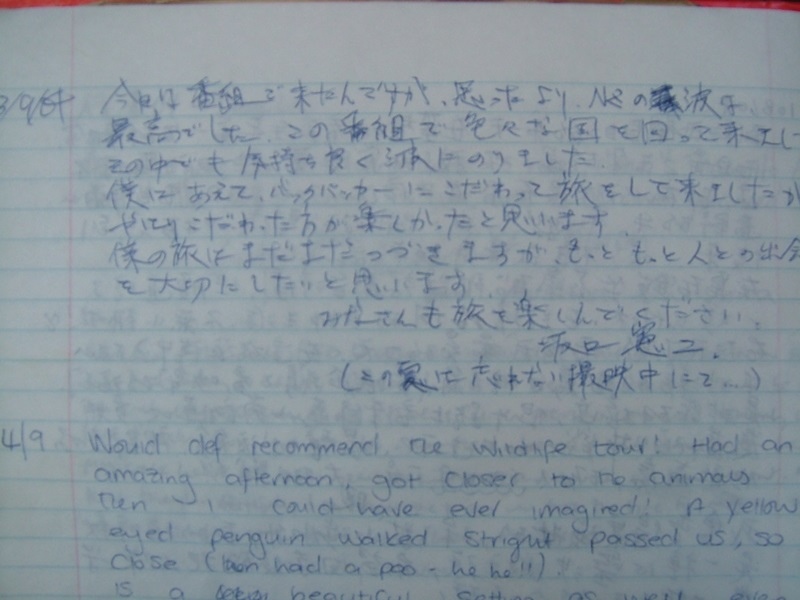 今回は番組で来たんですが、思ったより、NZの波は
最高でした。この番組で色々な国を回って来まし
その中でも気持ち良く波にのりました。
僕はあえて、バックパッカーにこだわって旅をして来ましたが
やはりこだわった方が楽しかったと思います。
僕の旅はまだまだつづきますが、もっともっと人との出会
を大切にしたいと思います
みなさんも旅を楽しんでください。
坂口憲二.
(この夏は忘れない撮影中にて...)
4/9 Would def recommend the wildlife tour! Had an
amazing afternoon, got closer to the animals
then I could have ever imagined! A yellow
eyed penguin walked stright passed us, so
close (then had a poo - he he!!).
is a beautiful setting as well, even